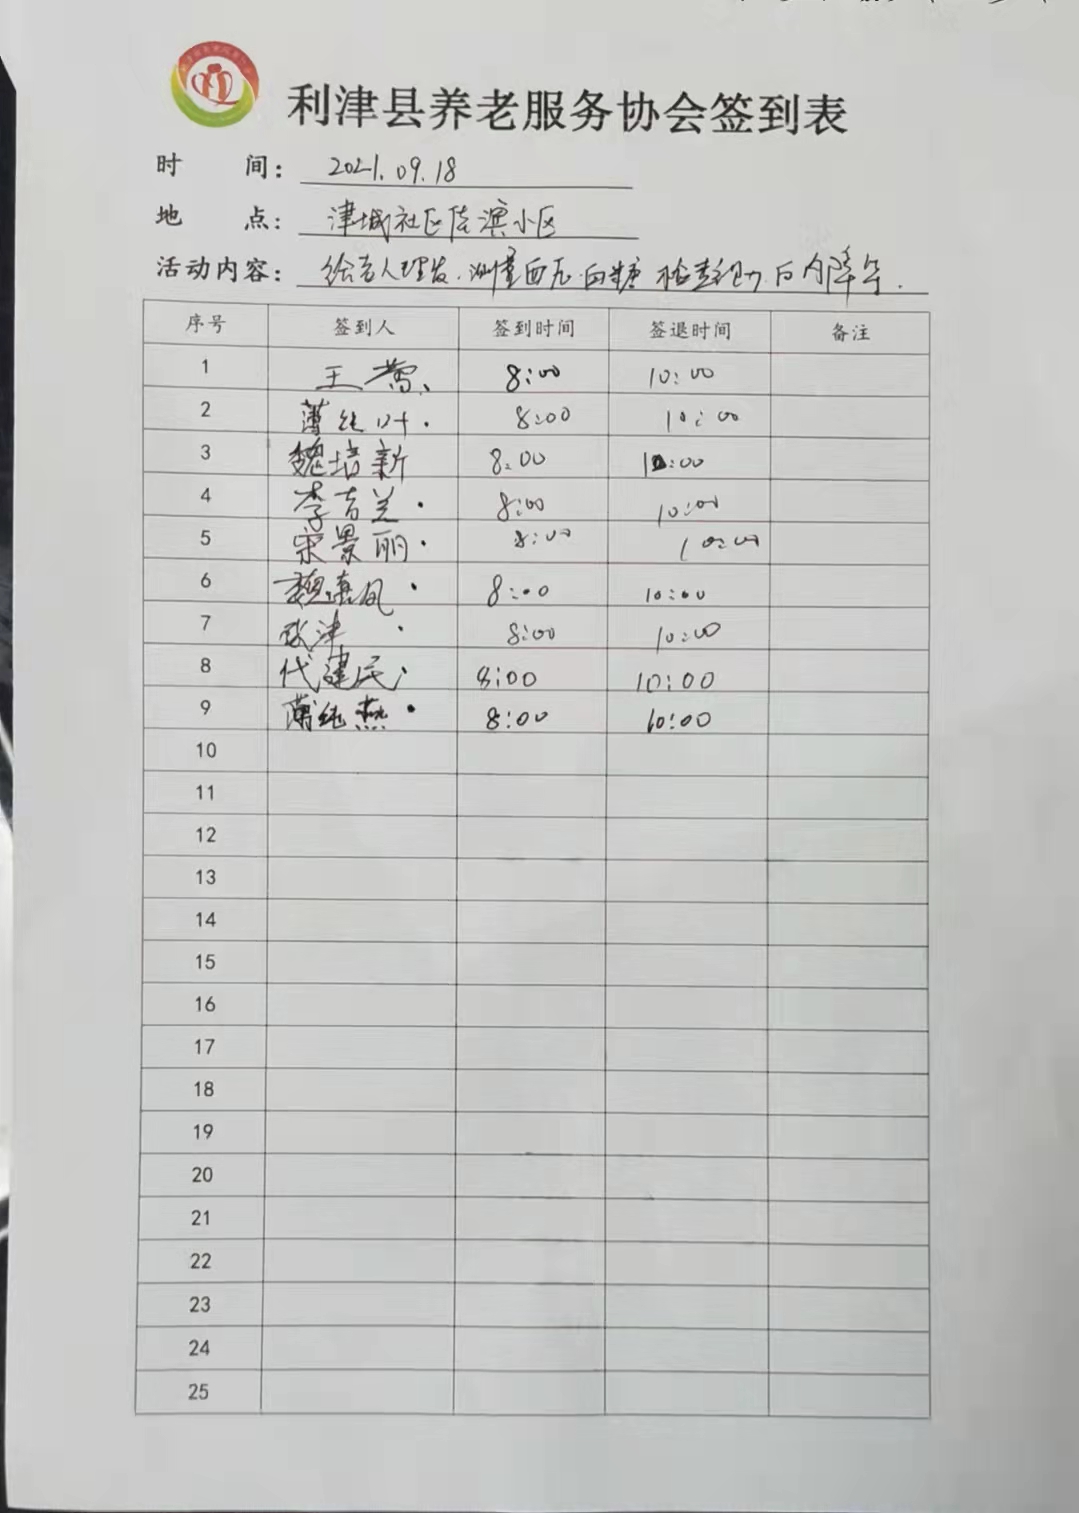 利津县养老服务协会签到表
时 间： 2021.09.18
地 点： 津城社区佳滨小区
活动内容： 给老人理发.测量血压.血糖 检查视力.白内障等.
序号 签到人 签到时间 签退时间 备注
1 王莺、 8:00 10:00
2 薄纯叶. 8:00 10:00
3 魏培新 8:00 10:00
4 李吉兰. 8:00 10:00
5 宋景丽. 8:00 10:00
6 8:00 10:00
7 8:00 10:00
8 代建民. 8:00 10:00
9 薄纯燕. 8:00 10:00
10
11
12
13
14
15
16
17
18
19
20
21
22
23
24
25